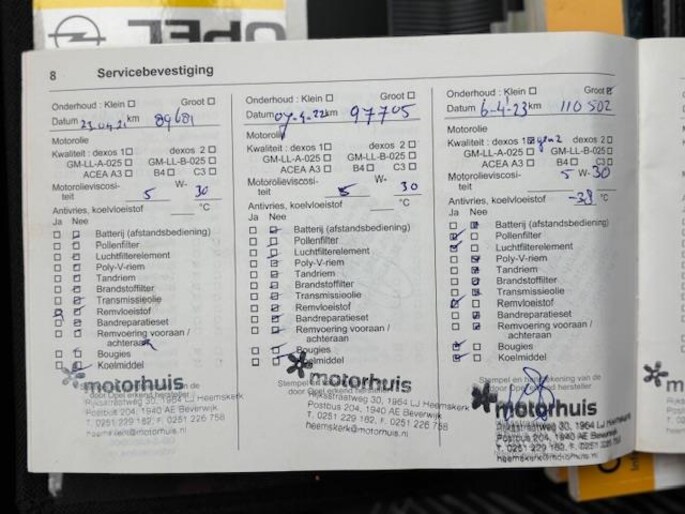 OPEL
8 Servicebevestiging
Onderhoud : Klein Groot
Datum 23.04.21 km 89681
Motorolie
Kwaliteit : dexos 1 dexos 2
GM-LL-A-025 GM-LL-B-025
ACEA A3 B4 C3
Motorolieviscosi- W-
teit 5 30
Antivries, koelvloeistof °C
Ja Nee
Batterij (afstandsbediening)
Pollenfilter
Luchtfilterelement
Poly-V-riem
Tandriem
Brandstoffilter
Transmissieolie
Remvloeistof
Bandreparatieset
Remvoering vooraan /
achteraan
Bougies
Koelmiddel
motorhuis
Rijksstraatweg 30, 1964 LJ Heemskerk
Postbus 204, 1940 AE Beverwijk
T. 0251 229 182, F. 0251 226 758
heemskerk@motorhuis.nl
Onderhoud : Klein Groot
Datum 07-4-22 km 97705
Motorolie
Kwaliteit : dexos 1 dexos 2
GM-LL-A-025 GM-LL-B-025
ACEA A3 B4 C3
Motorolieviscosi- W-
teit 5 30
Antivries, koelvloeistof °C
Ja Nee
Batterij (afstandsbediening)
Pollenfilter
Luchtfilterelement
Poly-V-riem
Tandriem
Brandstoffilter
Transmissieolie
Remvloeistof
Bandreparatieset
Remvoering vooraan /
achteraan
Bougies
Koelmiddel
Stempel en handtekening van de
door Opel erkend hersteller
motorhuis
Rijksstraatweg 30, 1964 LJ Heemskerk
Postbus 204, 1940 AE Beverwijk
T. 0251 229 182, F. 0251 226 758
heemskerk@motorhuis.nl
Onderhoud : Klein Groot
Datum 6-4-23 km 110502
Motorolie
Kwaliteit : dexos 1 gen2 dexos 2
GM-LL-A-025 GM-LL-B-025
ACEA A3 B4 C3
Motorolieviscosi- 5 W-30
teit
Antivries, koelvloeistof -38 °C
Ja Nee
Batterij (afstandsbediening)
Pollenfilter
Luchtfilterelement
Poly-V-riem
Tandriem
Brandstoffilter
Transmissieolie
Remvloeistof
Bandreparatieset
Remvoering vooraan /
achteraan
Bougies
Koelmiddel
Stempel en handtekening van de
door Opel erkend hersteller
motorhuis
Rijksstraatweg 30, 1964 LJ Heemskerk
Postbus 204, 1940 AE Beverwijk
T. 0251 229 182, F. 0251 226 758
heemskerk@motorhuis.nl